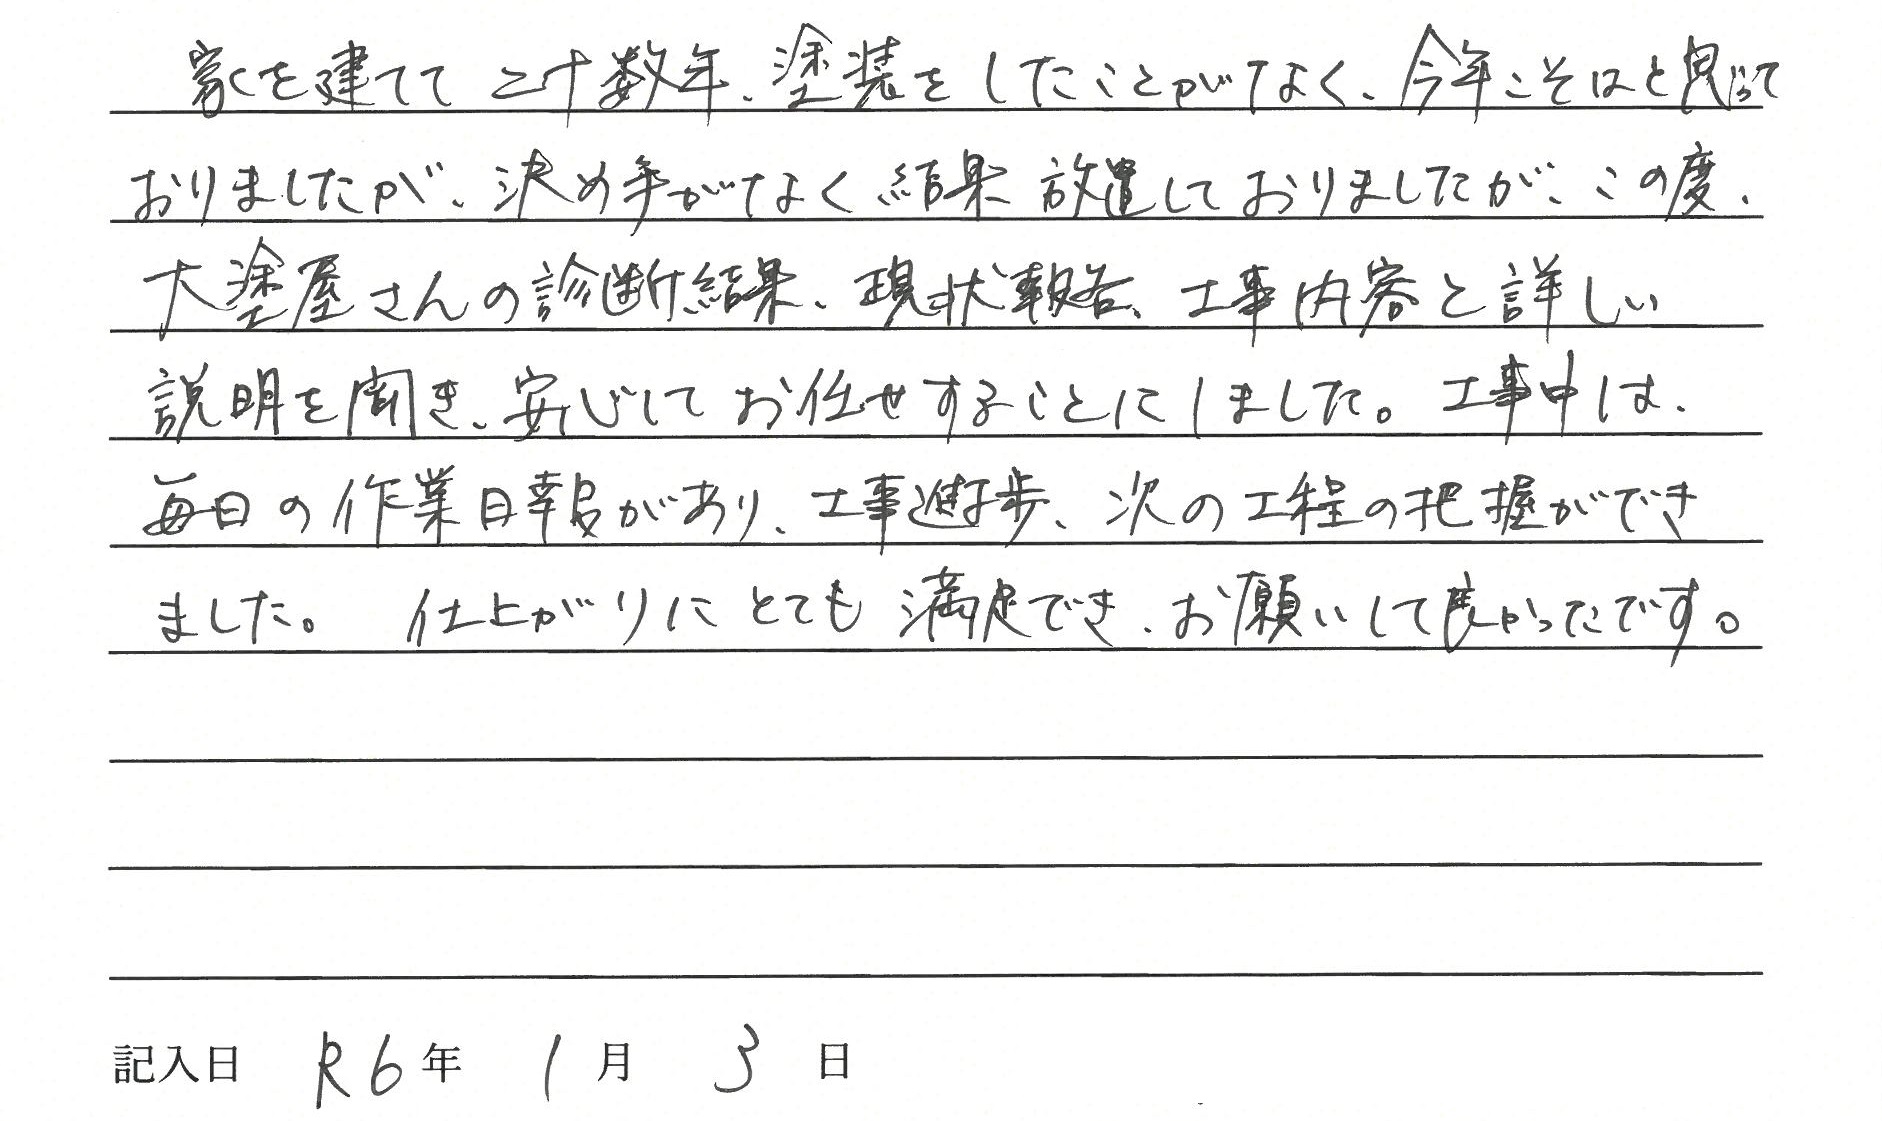 家を建てて二十数年、塗装をしたことがなく、今年こそはと思って
おりましたが、決め手がなく結果放置しておりましたが、この度、
大塗屋さんの診断結果、現状報告、工事内容と詳しい
説明を聞き、安心してお任せすることにしました。工事中は、
毎日の作業日報があり、工事進歩、次の工程の把握ができ
ました。 仕上がりにとても満足でき、お願いして良かったです。
記入日 R6年 1月 3日